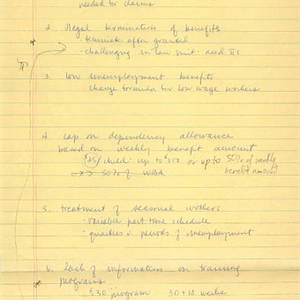 needed for claims
2. Illegal termination of benefits
terminate after granted
- challenging in law suit - need π's
3. low unemployment benefits
change formula for low wage workers
4. cap on dependency allowance
based on weekly benefit amount
($25/child up to or up to 50% of weekly
benefit amount)
50% of WBA
5. treatment of seasonal workers
- variable part time schedule
- quarters v. periods of unemployment
6. Lack of information on training
programs
§30 program 30+18 weeks